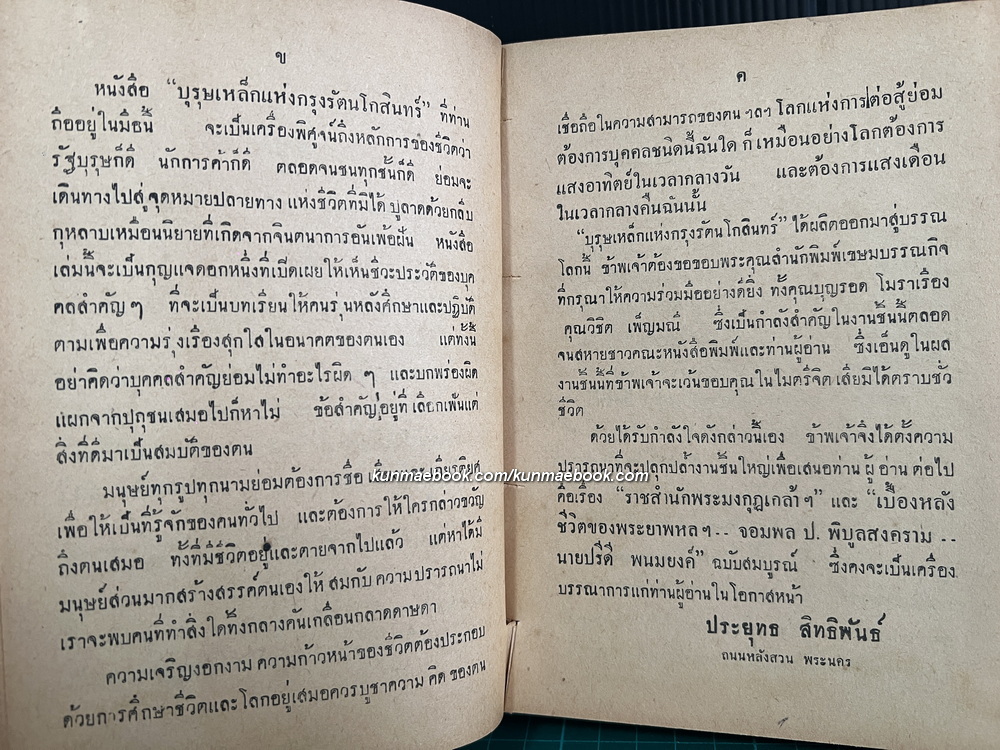 ข
หนังสือ “บุรุษเหล็กแห่งกรุงรัตนโกสินทร์” ที่ท่าน
ถืออยู่ในมือนี้ จะเป็นเครื่องพิศูจน์ถึงหลักการของชีวิตว่า
รัฐบุรุษก็ดี นักการค้าก็ดี ตลอดจนชนทุกชั้นก็ดี ย่อมจะ
เดินทางไปสู่จุดหมายปลายทาง แห่งชีวิตที่มิได้ ปูลาดด้วยกลีบ
กุหลาบเหมือนนิยายที่เกิดจากจินตนาการอันเพ้อฝัน หนังสือ
เล่มนี้จะเป็นกุญแจดอกหนึ่งที่เปิดเผยให้เห็นชีวะประวัติของบุค
คลสำคัญๆ ที่จะเป็นบทเรียนให้คนรุ่นหลังศึกษาและปฏิบัติ
ตามเพื่อความรุ่งเรืองสุกใสในอนาคตของตนเอง แต่ทั้งนี้
อย่าคิดว่าบุคคลสำคัญย่อมไม่ทำอะไรผิด ๆ และบกพร่องผิด
แผกจากปุถุชนเสมอไปก็หาไม่ ข้อสำคัญอยู่ที่ เลือกเฟ้นแต่
สิ่งที่ดีมาเป็นสมบัติของตน
มนุษย์ทุกรูปทุกนามย่อมต้องการชื่อ
เพื่อให้เป็นที่รู้จักของคนทั่วไป และต้องการให้ใครกล่าวขวัญ
ถึงตนเสมอ ทั้งที่มีชีวิตอยู่และตายจากไปแล้ว แต่หาได้มี
มนุษย์ส่วนมากสร้างสรรค์ตนเองให้ สมกับ ความปรารถนาไม่
เราจะพบคนที่ทำสิ่งใดทิ้งกลางคันเกลื่อนกลาดดาษดา
ความเจริญงอกงาม ความก้าวหน้าของชีวิตต้องประกอบ
ด้วยการศึกษาชีวิตและโลกอยู่เสมอควรบูชาความ คิด ของตน
ค
เชื่อถือในความสามารถของตน ฯลฯ โลกแห่งการต่อสู้ย่อม
ต้องการบุคคลชนิดนี้ฉันใด ก็เหมือนอย่างโลกต้องการ
แสงอาทิตย์ในเวลากลางวัน และต้องการแสงเดือน
ในเวลากลางคืนฉันนั้น
“บุรุษเหล็กแห่งกรุงรัตนโกสินทร์” ได้ผลิตออกมาสู่บรรณ
โลกนี้ ข้าพเจ้าต้องขอขอบพระคุณสำนักพิมพ์เขษมบรรณกิจ
ที่กรุณาให้ความร่วมมืออย่างดียิ่ง ทั้งคุณบุญรอด โมราเรือง
คุณวิชิต เพ็ญมณี ซึ่งเป็นกำลังสำคัญในงานชิ้นนี้ตลอด
จนสหายชาวคณะหนังสือพิมพ์และท่านผู้อ่าน ซึ่งเอ็นดูในผล
งานชิ้นนี้ที่ข้าพเจ้าจะเว้นขอบคุณในไมตรีจิต เสี่ยมิได้ตราบชั่ว
ชีวิต
ด้วยได้รับกำลังใจดังกล่าวนี้เอง ข้าพเจ้าจึงได้ตั้งความ
ปรารถนาที่จะปลุกปล้ำงานชิ้นใหญ่เพื่อเสนอท่าน ผู้ อ่าน ต่อไป
kunmaebook.com/kunmaebook.com
คือเรื่อง “ราชสำนักพระมงกุฎเกล้าฯ” และ “เบื้องหลัง
ชีวิตของพระยาพหลฯ-- จอมพล ป. พิบูลสงคราม --
นายปรีดี พนมยงค์” ฉบับสมบูรณ์ ซึ่งคงจะเป็นเครื่อง
บรรณาการแก่ท่านผู้อ่านในโอกาสหน้า
ประยุทธ สิทธิพันธ์
ถนนหลังสวน พระนคร